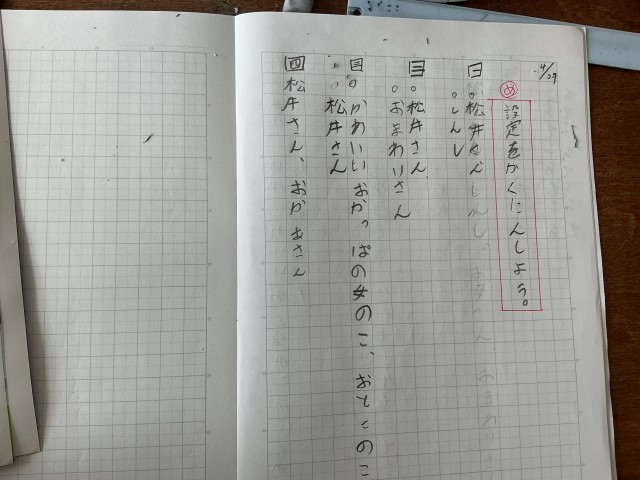 4/27
め
設定をかくにんしよう。
一 。松井さん
。しんし
二 。松井さん
。おまわりさん
三 。かわいいおかっぱの女のこ、おとこのこ
。松井さん
四 松井さん、おかあさん